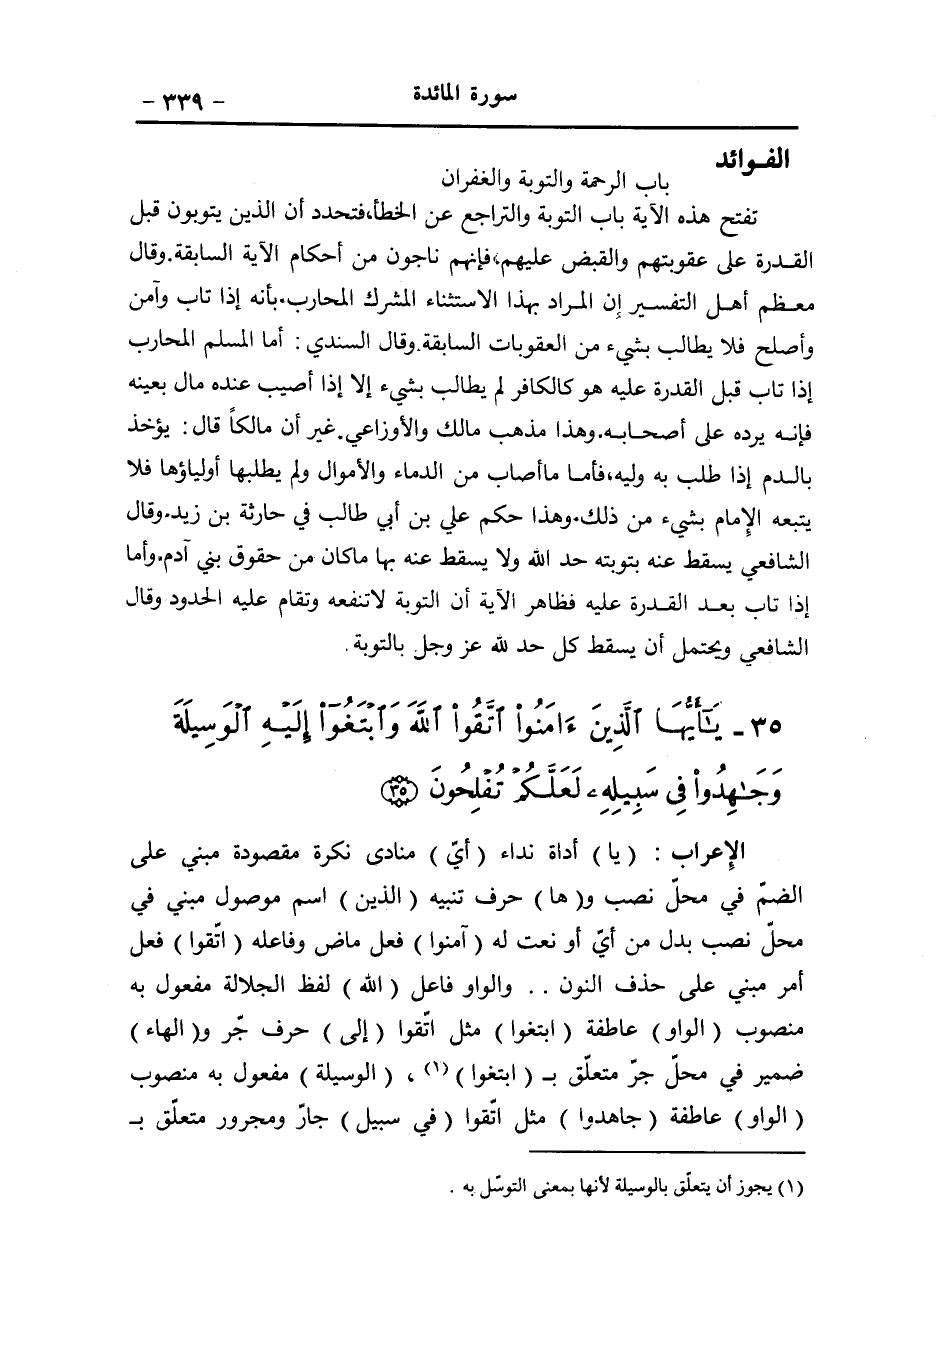 سورة المائدة
- ٣٣٩ -
الفـوائد
باب الرحمة والتوبة والغفران
تفتح هذه الآية باب التوبة والتراجع عن الخطأ،فتحدد أن الذين يتوبون قبل
القـدرة على عقوبتهم والقبض عليهم،فإنهم ناجون من أحكام الآية السابقة.وقال
معـظم أهـل التفسـير إن المـراد بهذا الاستثناء المشرك المحارب.بأنه إذا تاب وآمن
وأصلح فلا يطالب بشيء من العقوبات السابقة.وقال السندي : أما المسلم المحارب
إذا تاب قبل القدرة عليه هو كالكافر لم يطالب بشيء إلا إذا أصيب عنده مال بعينه
فإنـه يرده على أصـحابـه.وهذا مذهب مالك والأوزاعي.غير أن مالكاً قال : يؤخذ
بالـدم إذا طلب به وليه،فأمـا ماأصاب من الدماء والأموال ولم يطلبها أولياؤها فلا
يتبعه الإمام بشيء من ذلك.وهذا حكم علي بن أبي طالب في حارثة بن زيد.وقال
الشافعي يسقط عنه بتوبته حد الله ولا يسقط عنه بها ماكان من حقوق بني آدم.وأما
إذا تاب بعـد القـدرة عليه فظاهر الآية أن التوبة لاتنفعه وتقام عليه الحدود وقال
الشافعي ويحتمل أن يسقط كل حد لله عز وجل بالتوبة .
٣٥ - يَـٰٓأَيُّهَا ٱلَّذِينَ ءَامَنُواْ ٱتَّقُواْ ٱللَّهَ وَٱبْتَغُوٓاْ إِلَيْهِ ٱلْوَسِيلَةَ
وَجَـٰهِدُواْ فِى سَبِيلِهِۦ لَعَلَّكُمْ تُفْلِحُونَ ﴿٣٥﴾
الإعراب : ( يا ) أداة نداء ( أيّ ) منادى نكرة مقصودة مبني على
الضمّ في محلّ نصب و( ها ) حرف تنبيه ( الذين ) اسم موصول مبني في
محلّ نصب بدل من أيّ أو نعت له ( آمنوا ) فعل ماض وفاعله ( اتّقوا ) فعل
أمر مبني على حذف النون . . والواو فاعل ( الله ) لفظ الجلالة مفعول به
منصوب ( الواو ) عاطفة ( ابتغوا ) مثل اتّقوا ( إلى ) حرف جّر و( الهاء )
ضمير في محلّ جرّ متعلّق بـ ( ابتغوا )(١) ، ( الوسيلة ) مفعول به منصوب
( الواو ) عاطفة ( جاهدوا ) مثل اتّقوا ( في سبيل ) جارّ ومجرور متعلّق بـ
(١) يجوز أن يتعلّق بالوسيلة لأنها بمعنى التوسّل به .